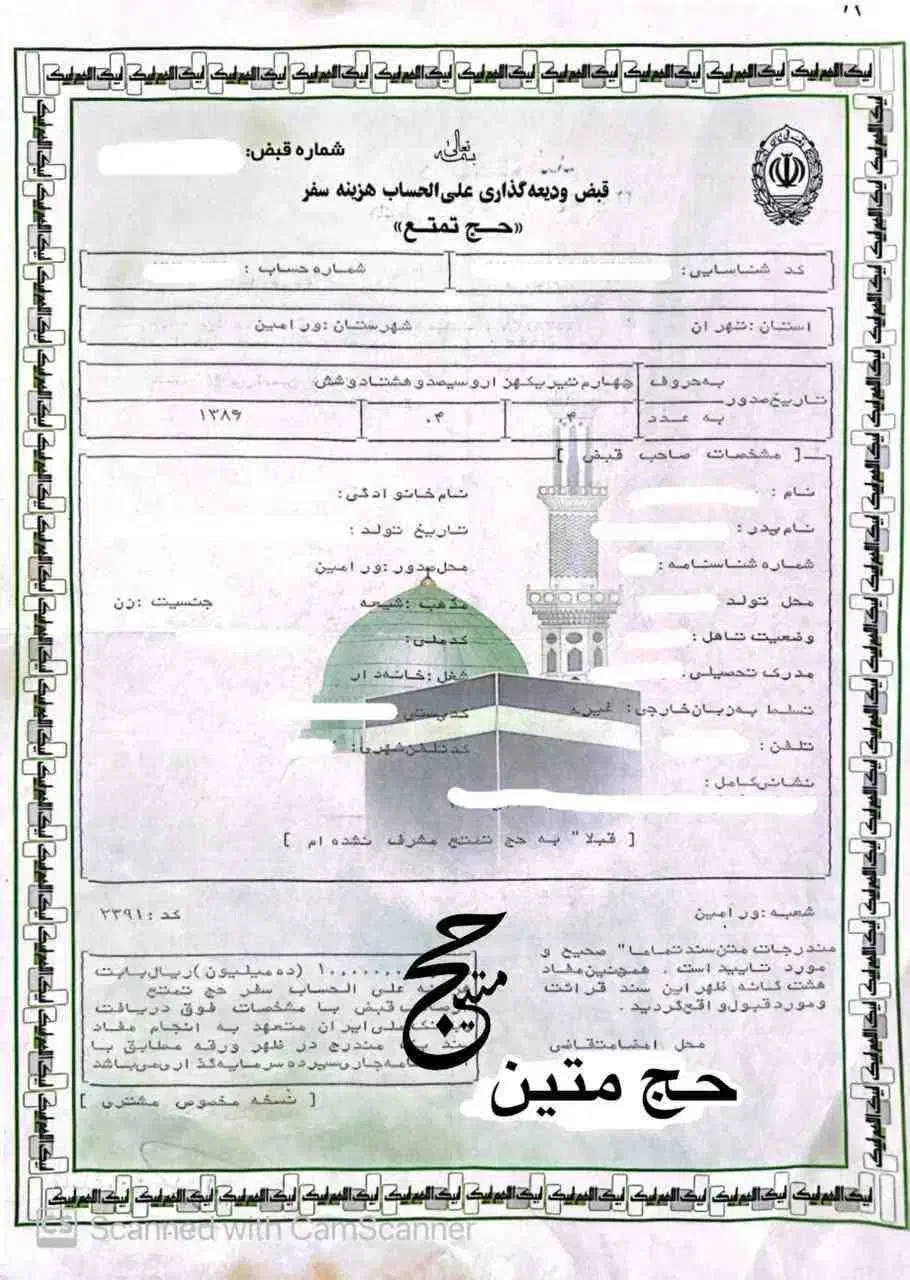 بسمه تعالی
شماره قبض:
قبض ودیعه‌گذاری علی‌الحساب هزینه سفر
«حج تمتع»
کد شناسایی: شماره حساب :
استان :تهران شهرستان :ورامین
تاریخ صدور به حروف چهارم تیر یکهزاروسیصدوهشتادوشش
به عدد ۰۴ ۰۴ ۱۳۸۶
[ مشخصات صاحب قبض ]
نام : نام خانوادگی :
نام پدر : تاریخ تولد :
شماره شناسنامه : محل صدور :ورامین
محل تولد مذهب :شیعه جنسیت :زن
وضعیت تاهل : کدملی :
مدرک تحصیلی . شغل :خانه‌دار
تسلط به‌زبان‌خارجی : غیره کدپستی
تلفن : کدتلفن‌شهری :
نشانی‌کامل :
[ قبلا" به حج تمتع مشرف نشده ام ]
شعبه :ورامین کد :۲۳۹۱
مندرجات متن سند تماما" صحیح و
مورد تایید است . همچنین مفاد
هشت گانه ظهر این سند قرائت
و مورد قبول واقع گردید .
محل امضا متقاضی
(ده میلیون) ریال بابت
علی الحساب سفر حج تمتع
قبض با مشخصات فوق دریافت
ملی ایران متعهد به انجام مفاد
مندرج در ظهر ورقه مطابق با
سپرده سرمایه‌گذاری می‌باشد
[ نسخه مخصوص مشتری ]
حج متین
حج متین
لبیک اللهم لبیک
CS Scanned with CamScanner